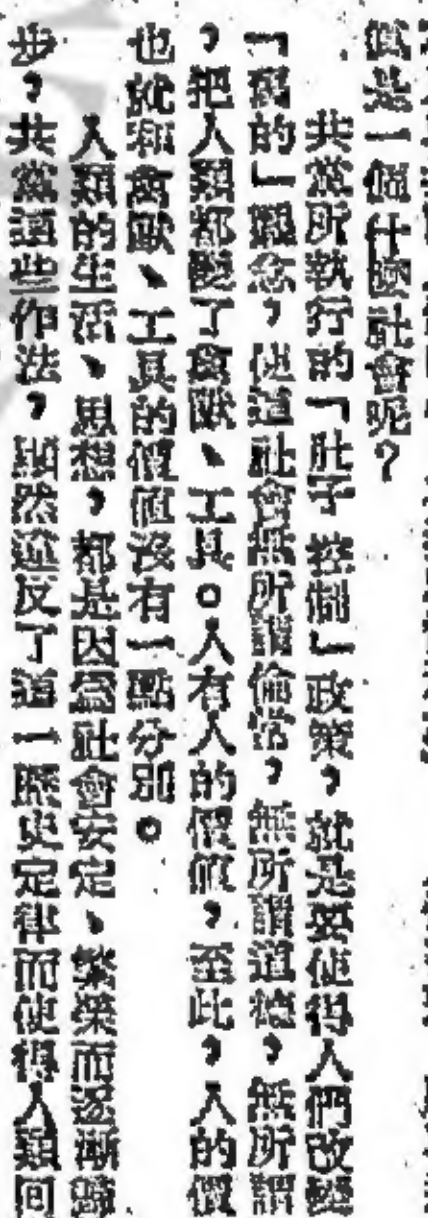 個是一個什麼社會呢？
共黨所執行的「肚子控制」政策，就是要使得人們改變
「舊的」觀念，使這社會無所謂倫常，無所謂道德，無所謂
，把人類都變了禽獸、工具。人有人的價值，至此，人的價
也就和禽獸、工具的價值沒有一點分別。
人類的生活、思想，都是因為社會安定、繁榮而逐漸
步，共黨這些作法，顯然違反了這一歷史定律而使得人類回